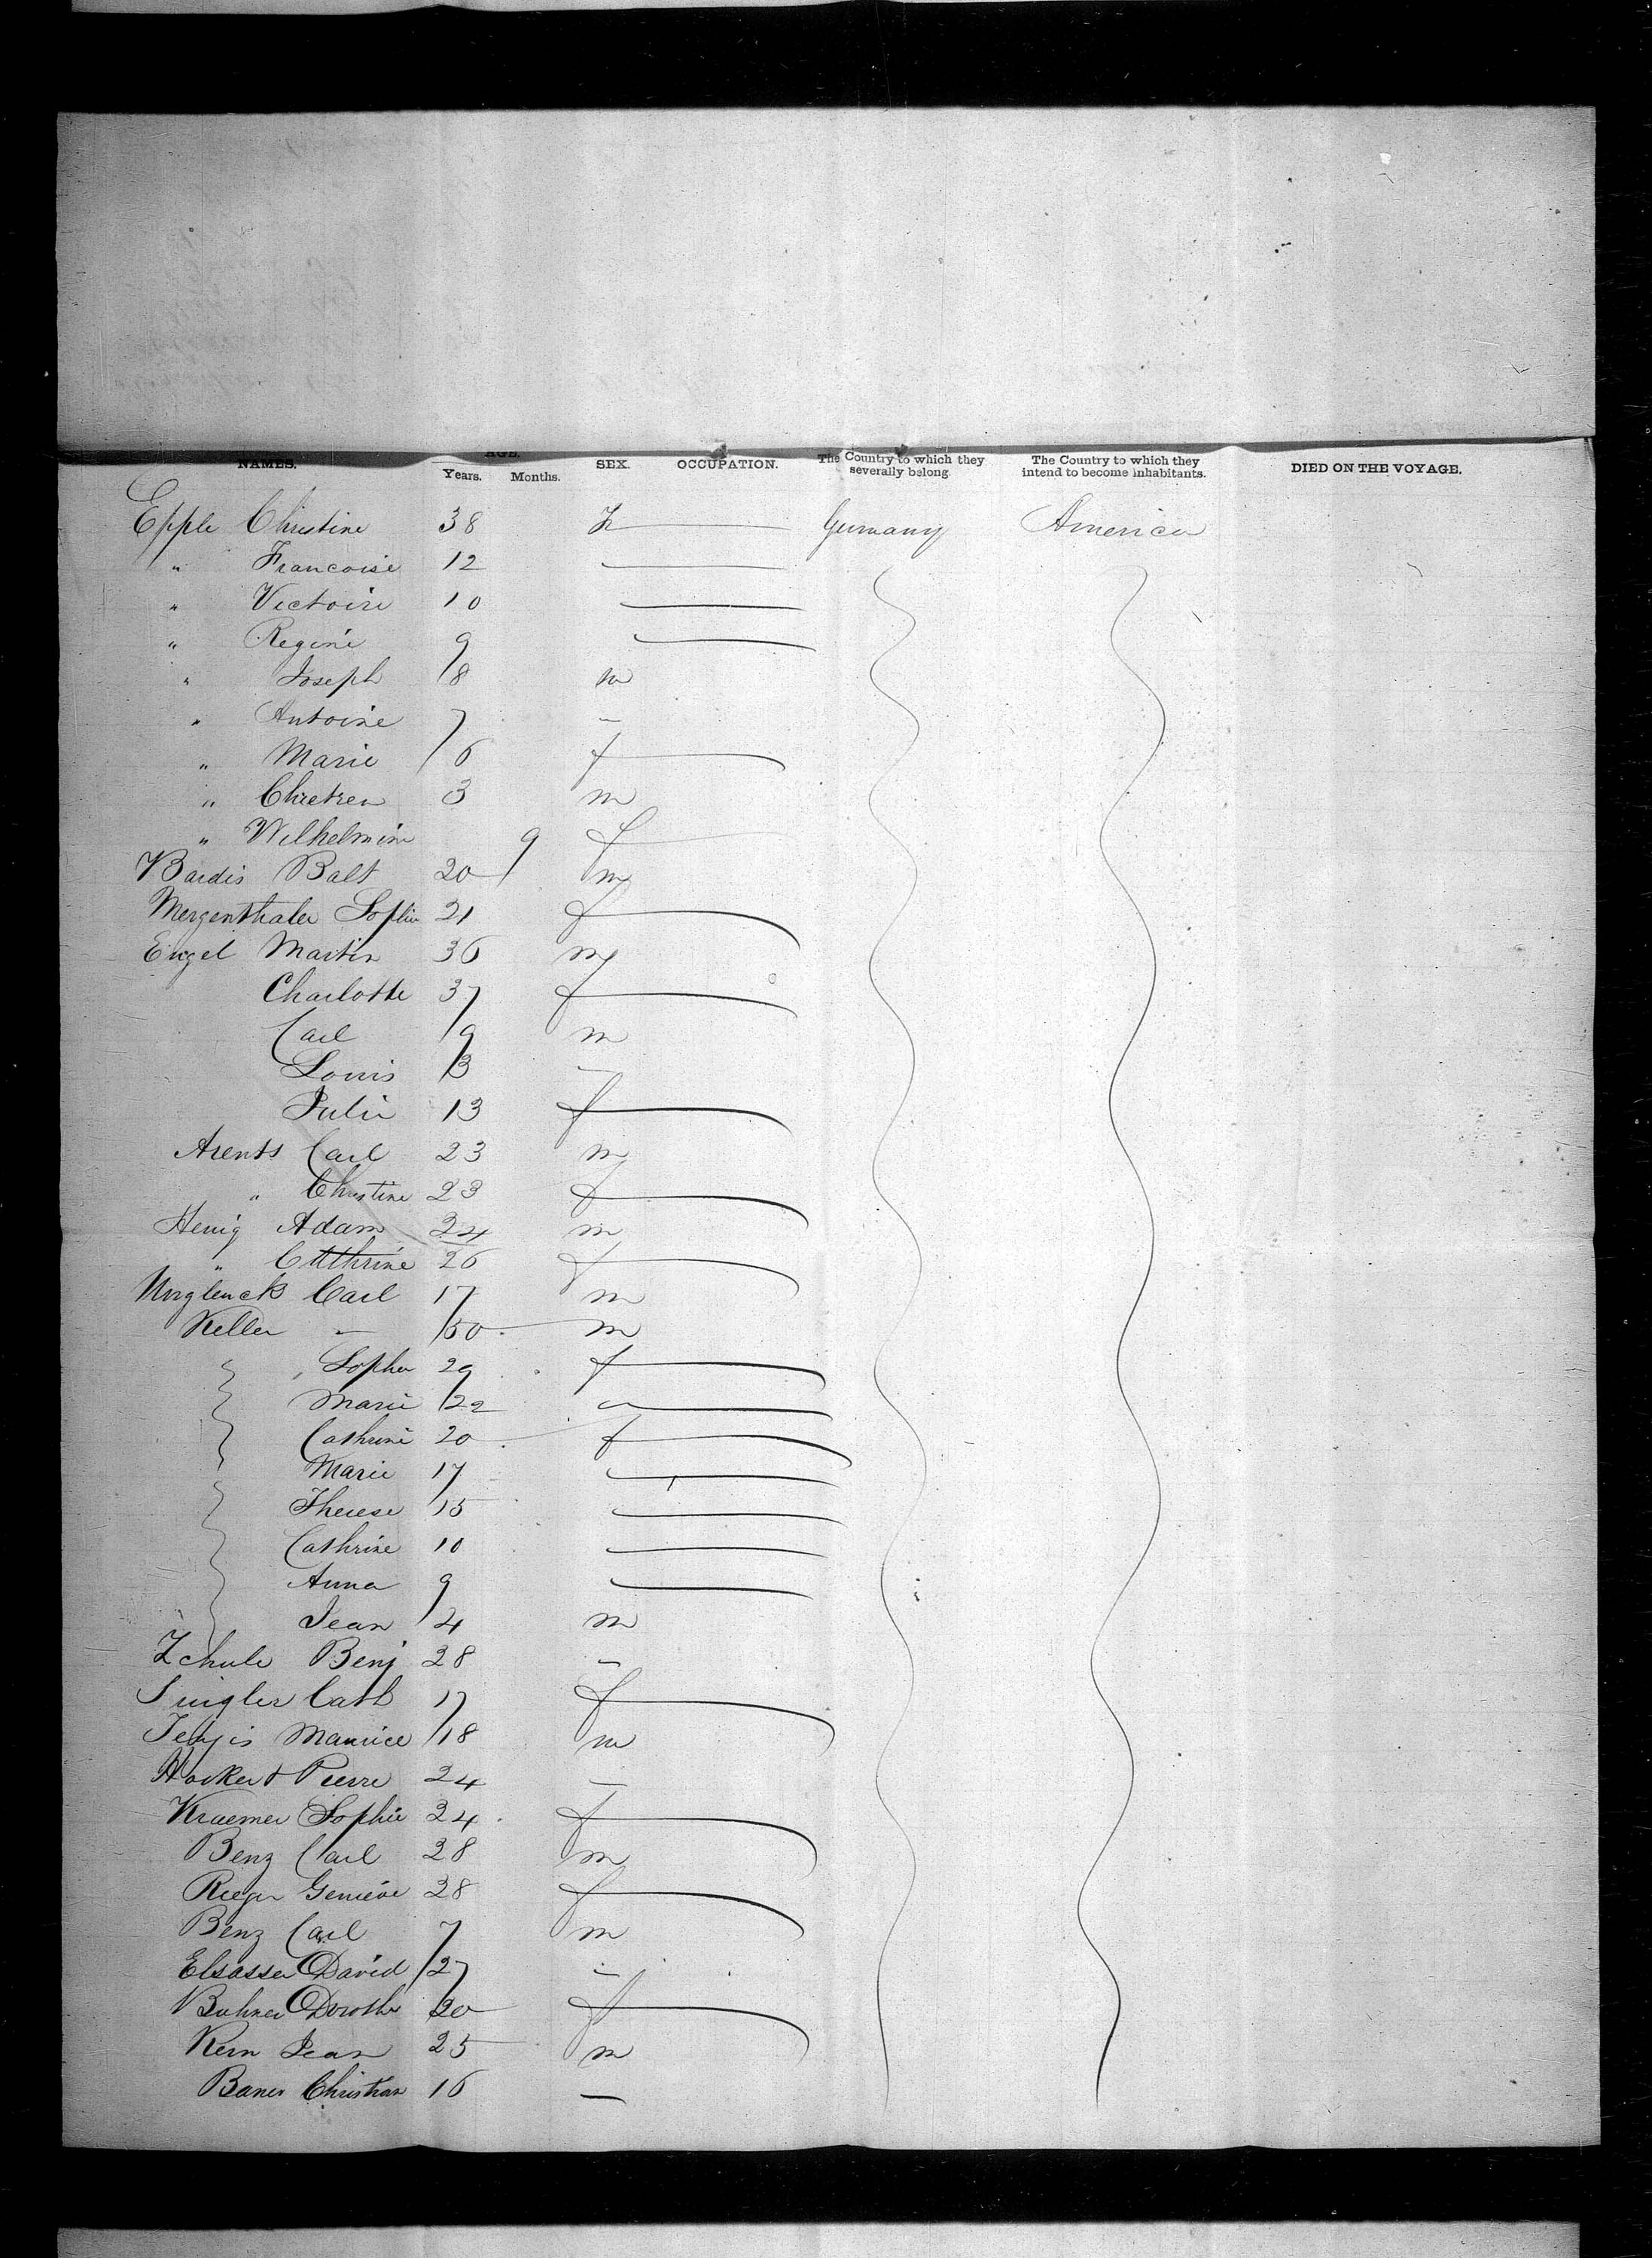 NAMES. AGE. Years. Months. SEX. OCCUPATION. The Country to which they severally belong. The Country to which they intend to become inhabitants. DIED ON THE VOYAGE.
Epple Christine 38 f Germany America
" Francoise 12
" Victoire 10
" Regine 9
" Joseph 8 m
" Antoine 7 –
" Marie 6 f
" Chretien 3 m
" Wilhelmine 9 f
Bardis Balt 20 m
Mergenthaler Sophie 21 f
Engel Martin 36 m
Charlotte 37 f
Carl 9 m
Louis 3 –
Julie 13 f
Arents Carl 23 m
" Christine 23 f
Henig Adam 24 m
" Cathrine 26 f
Carl 17 m
Keller – 50 m
Sophie 29 f
Marie 22
Cathrine 20 f
Marie 17
Therese 15
Cathrine 10
Anna 9
Jean 4 m
Zchule Benj 28 –
Singler Cath 17 f
Maurice 18 m
Hockert Pierre 24 –
Kraemer Sophie 24 f
Benz Carl 28 m
Rieger Genieve 28 f
Benz Carl 7 m
Elsasser David 27 –
Buhner Dorothe 20 f
Kern Jean 25 m
Baner Christian 16 –